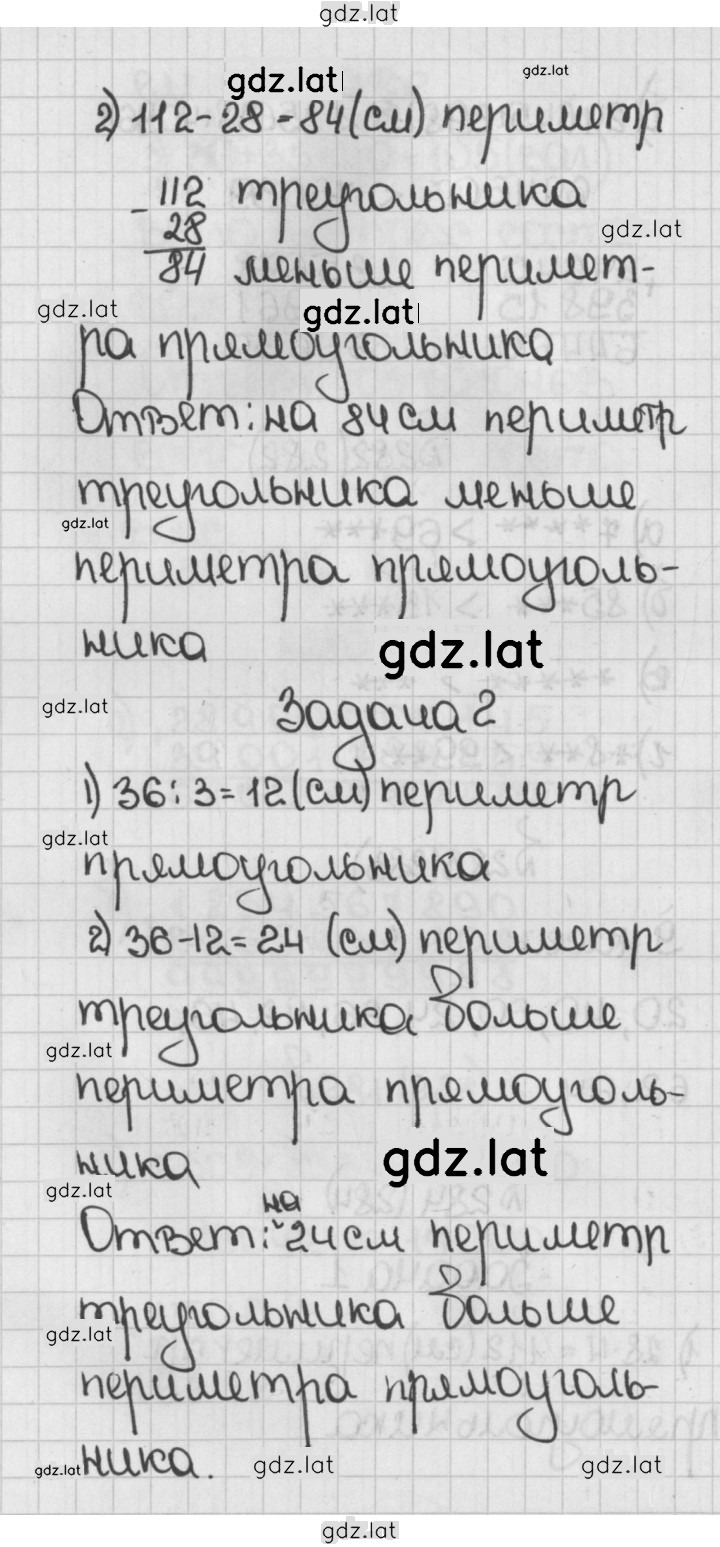 gdz.lat
gdz.lat
gdz.lat
2) 112 - 28 = 84 (см) периметр
- 112 треугольника
28
gdz.lat
84 меньше перимет-
gdz.lat
gdz.lat
ра прямоугольника
Ответ: на 84 см периметр
треугольника меньше
gdz.lat
периметра прямоуголь-
ника
gdz.lat
gdz.lat
Задача 2
1) 36 : 3 = 12 (см) периметр
gdz.lat
прямоугольника
2) 36 - 12 = 24 (см) периметр
треугольника больше
gdz.lat
периметра прямоуголь-
ника
gdz.lat
gdz.lat
на
Ответ: 24 см периметр
треугольника больше
gdz.lat
периметра прямоуголь-
ника.
gdz.lat
gdz.lat
gdz.lat
gdz.lat